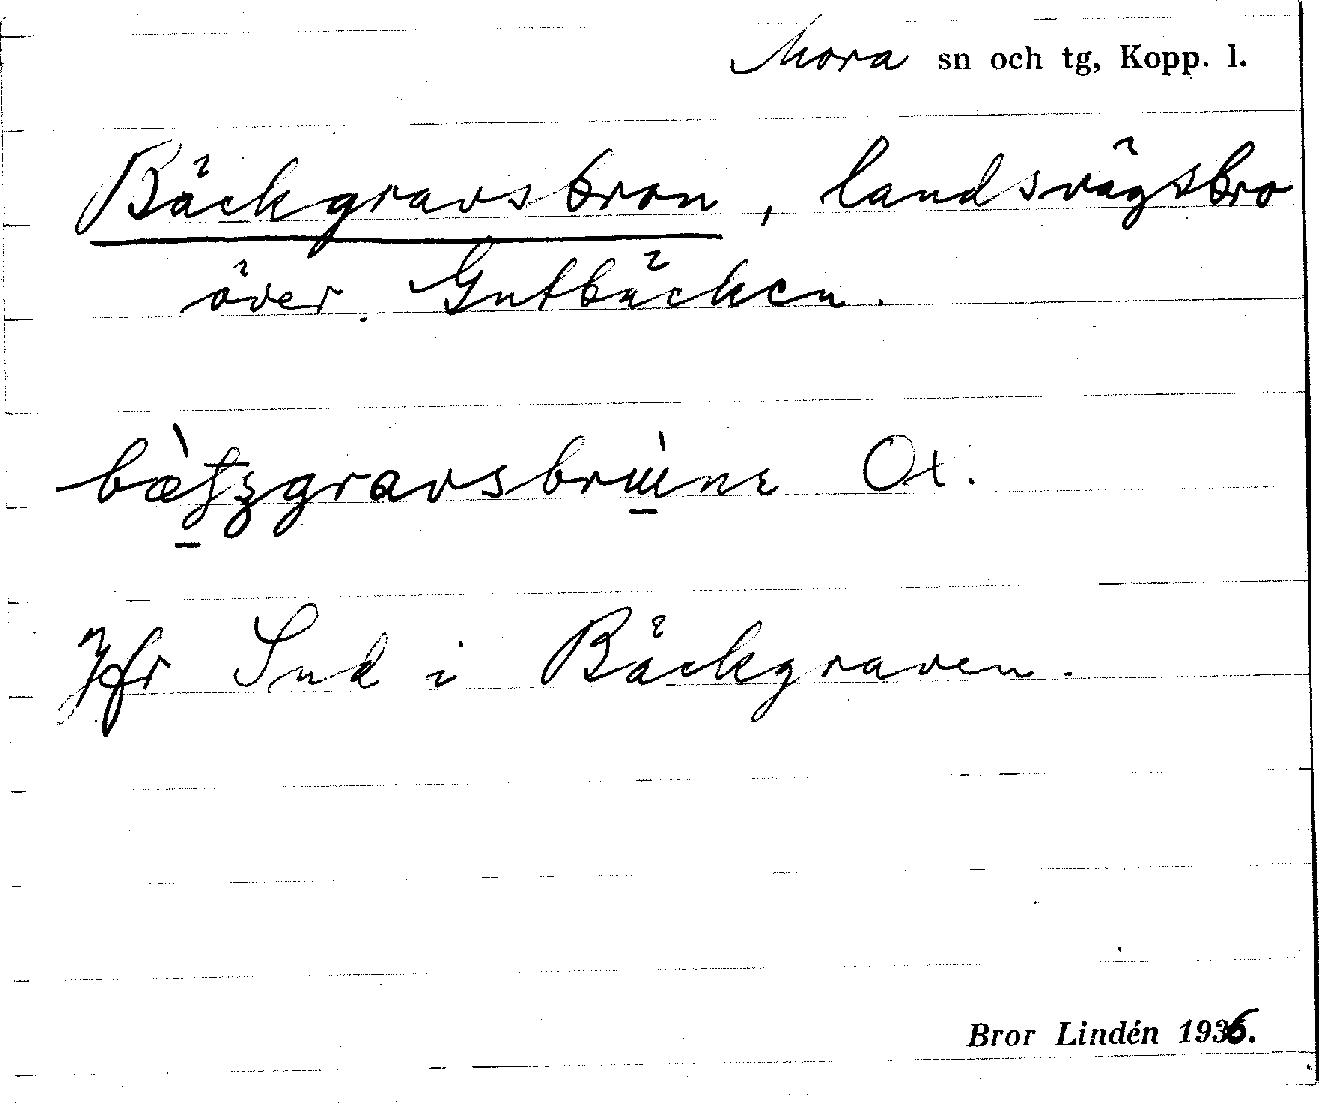 Mora sn och tg, Kopp. l.
Bäckgravsbron, landsvägsbro
över Gutbäcken.
Ox.
Jfr Snd i Bäckgraven.
Bror Lindén 1936.